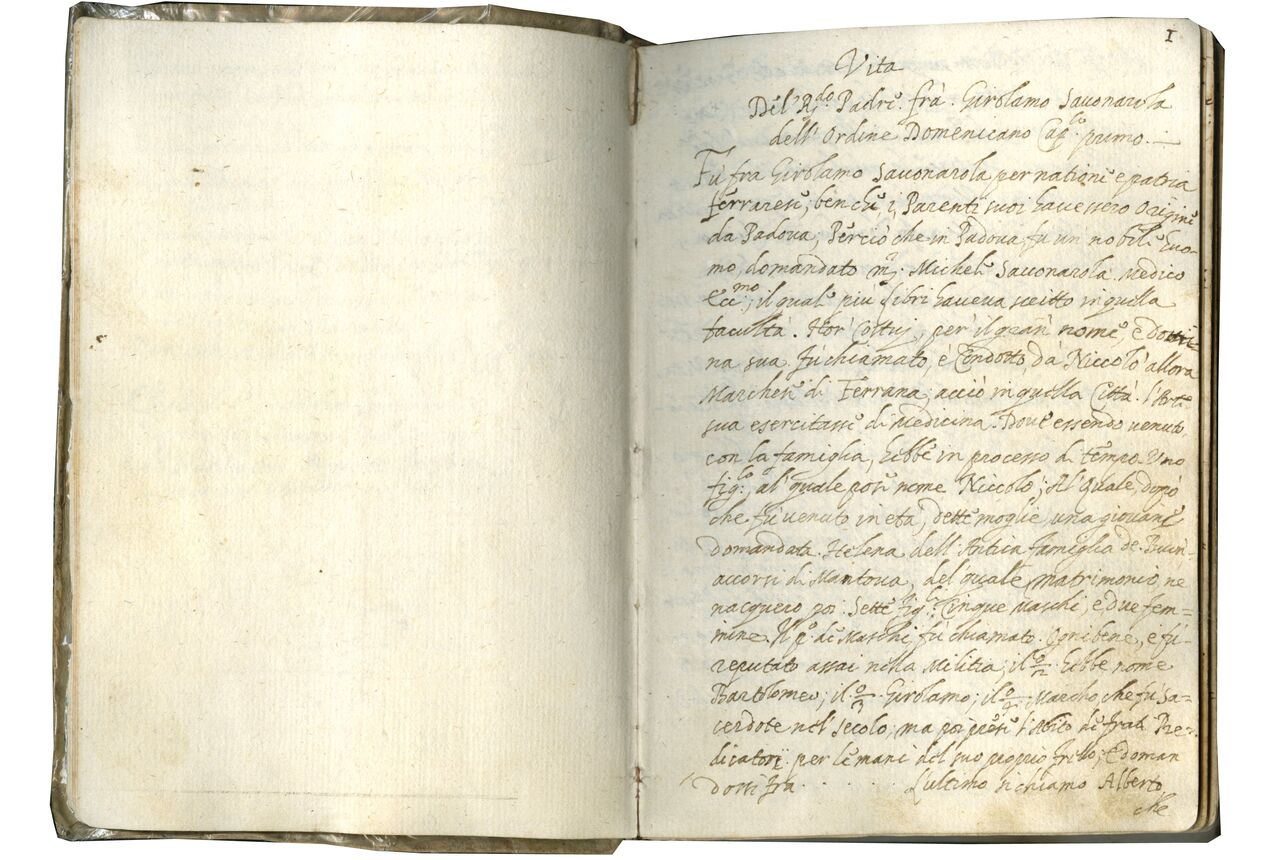 1
Vita
Del R.do Padre frà Girolamo Savonarola
dell'Ordine Domenicano Cap.lo primo.
Fù fra Girolamo Savonarola per natione e patria
ferrarese, ben che i Parenti suoi havessero Origine
da Padova, Perciò che in Padova fu un nobile huo-
mo, domandato m. Michele Savonarola Medico
ecc.mo, il quale piu libri haveva scritto in quella
facultà. Hor Costuj, per il gran nome, e Dottri-
na sua fù chiamato, e Condotto, da Niccolò allora
Marchese di Ferrana, acciò in quella Città l'Arte
sua esercitasse di Medicina. Dove essendo venuto
con la famiglia, hebbe in processo di tempo Uno
fig.lo, al quale pose nome Niccolo; Al Quale, dopò
che fù venuto in età, dette moglie, una giovane
domandata Helena dell'Antica famiglia de Buon-
accorsi di Mantova, del quale matrimonio ne
nacquero poi Sette fig.li Cinque Maschi, e due fem=
mine. Il p.o de Maschi fù chiamato Ognibene, e fù
reputato assai nella Militia; il 2.o hebbe nome
Bartolomeo; il 3.o Girolamo; il 4.o Marcho, che fù Sa=
cerdote nel secolo, ma poi prese l'Abito de frati Pre-
dicatori per le mani del suo proprio frello, e doman
dossi fra . . . . . L'ultimo si chiamo Alberto
che